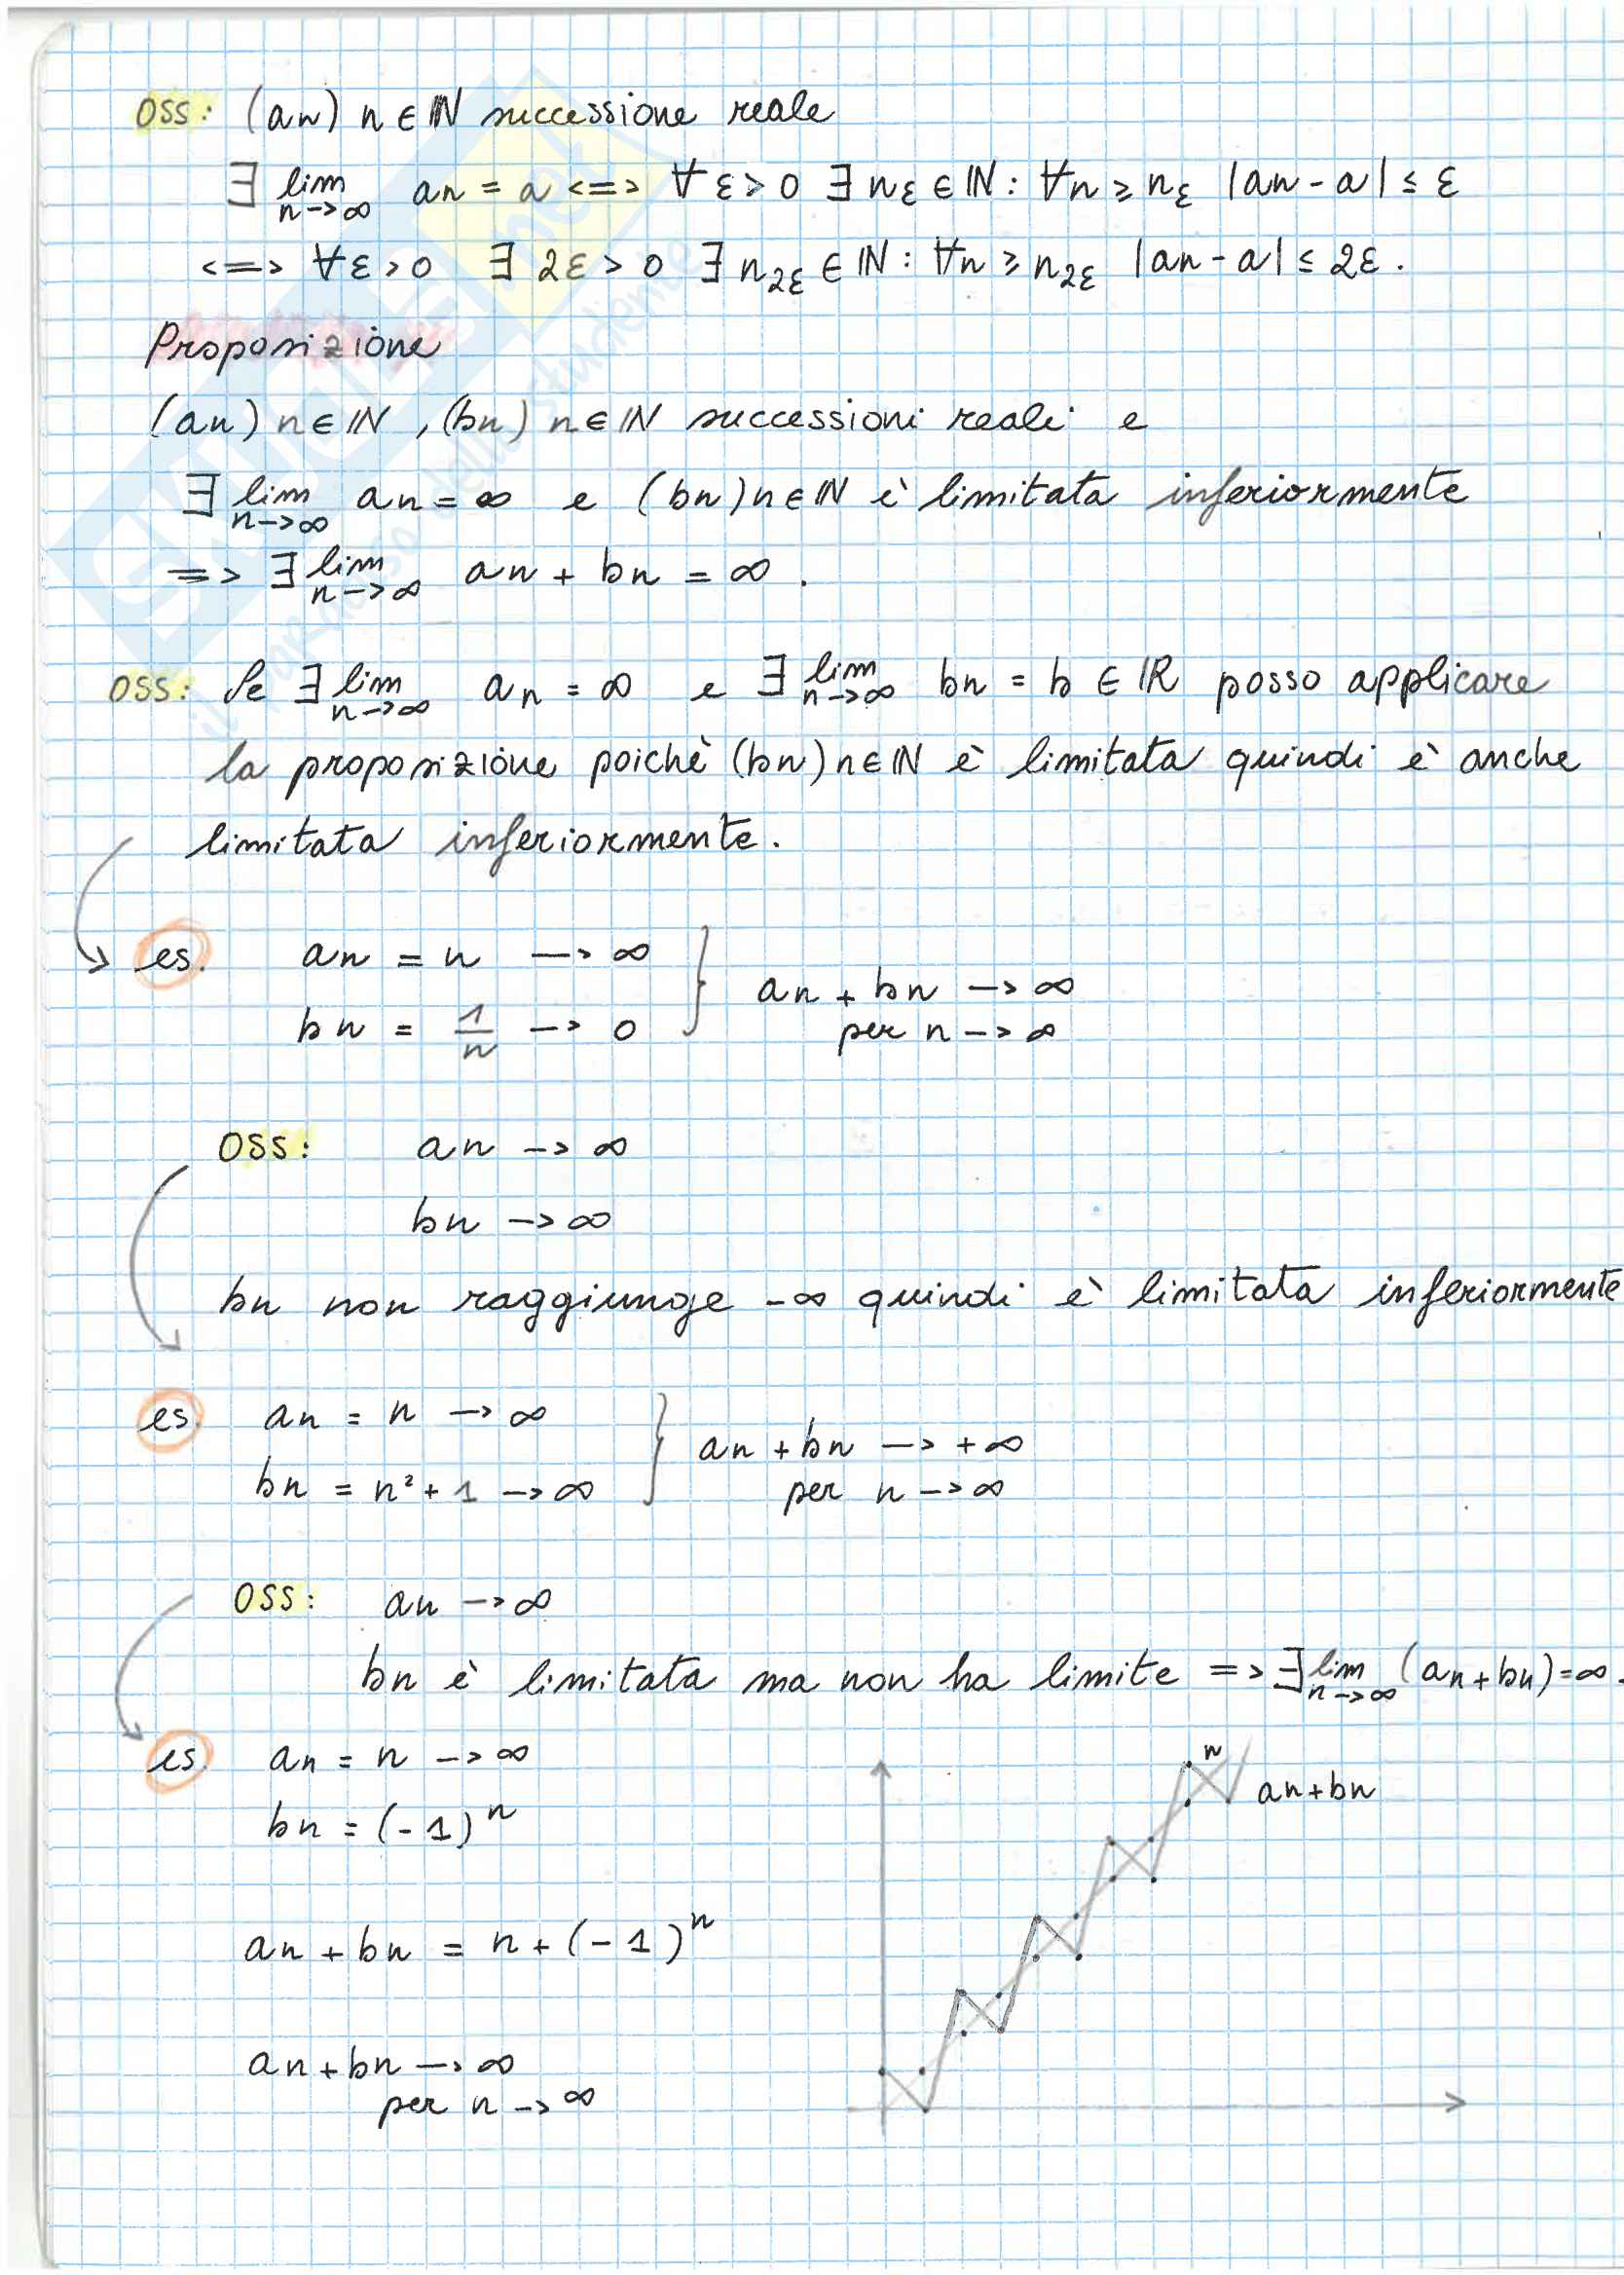 OSS: (an) n ∈ ℕ successione reale
∃ lim n->∞ an = a <=> ∀ ε > 0 ∃ nε ∈ ℕ : ∀n ≥ nε |an - a| ≤ ε
<=> ∀ε > 0 ∃ 2ε > 0 ∃ n2ε ∈ ℕ : ∀n ≥ n2ε |an - a| ≤ 2ε .
Proposizione
(an) n ∈ ℕ , (bn) n ∈ ℕ successioni reali e
∃ lim n->∞ an = ∞ e (bn) n ∈ ℕ è limitata inferiormente
=> ∃ lim n->∞ an + bn = ∞ .
OSS: Se ∃ lim n->∞ an = ∞ e ∃ lim n->∞ bn = b ∈ ℝ posso applicare
la proposizione poichè (bn) n ∈ ℕ è limitata quindi è anche
limitata inferiormente.
es. an = n -> ∞
bn = 1/n -> 0
an + bn -> ∞
per n -> ∞
OSS: an -> ∞
bn -> ∞
bn non raggiunge -∞ quindi è limitata inferiormente
es. an = n -> ∞
bn = n² + 1 -> ∞
an + bn -> +∞
per n -> ∞
OSS: an -> ∞
bn è limitata ma non ha limite => ∃ lim n->∞ (an + bn) = ∞.
es. an = n -> ∞
bn = (-1)ⁿ
n
an+bn
an + bn = n + (-1)ⁿ
an + bn -> ∞
per n -> ∞